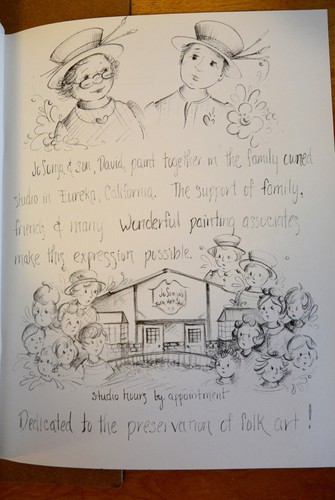 Jo Sonja & son, David, paint together in the family owned
studio in Eureka, California. The support of family,
friends & many Wonderful painting associates
make this expression possible.
Jo Sonja's
Folk Art Studio
studio hours by appointment
Dedicated to the preservation of folk art!